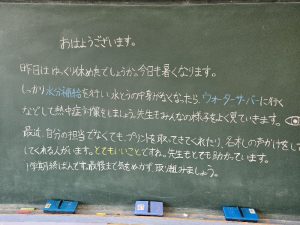 おはようございます。
昨日はゆっくり休めたでしょうか。今日も暑くなります。
しっかり水分補給を行い、水とうの中身がなくなったら、ウォーターサーバーに行く
などして熱中症対策をしましょう。先生もみんなの様子をよく見ていきます。
最近、自分の担当でなくても、プリントを取ってきてくれたり、名札の声かけをし
してくれる人がいます。とてもいいことですね。先生もとても助かっています。
1学期終ばんです。最後まで気をぬかず、取り組みましょう。